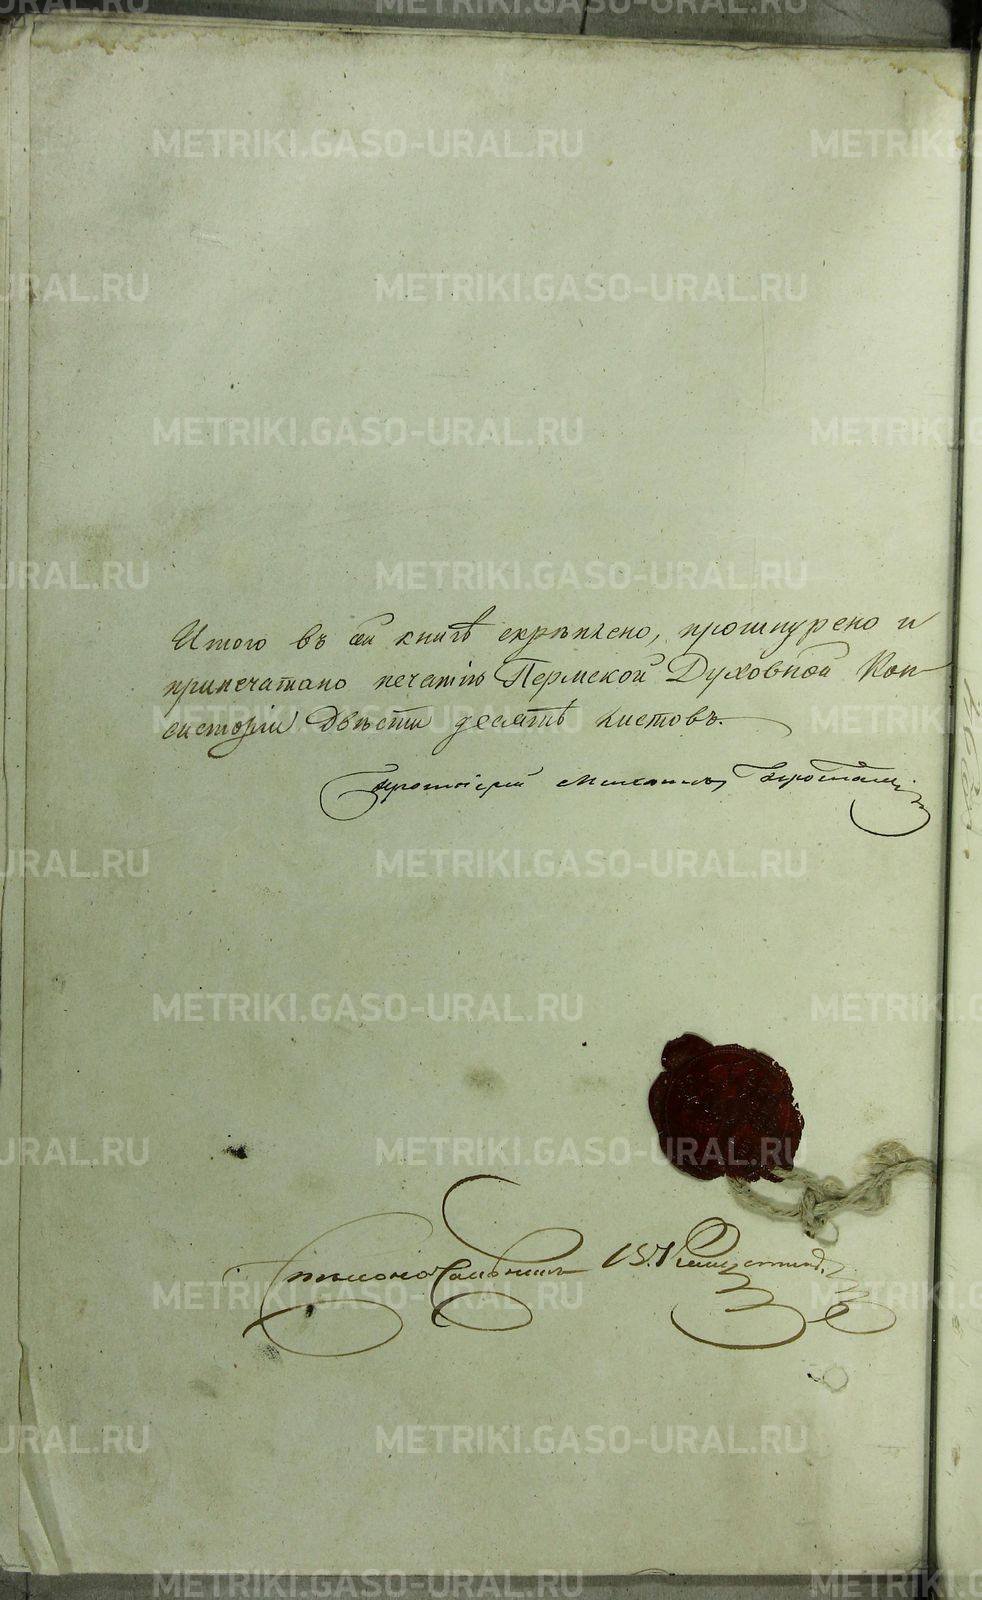 Итого въ сей книгѣ скрѣплено, прошнурено и
припечатано печатію Пермской Духовной Кон-
систоріи Двѣсти десять листовъ.
Протоіерей Михаилъ
Письмоводитель
METRIKI.GASO-URAL.RU